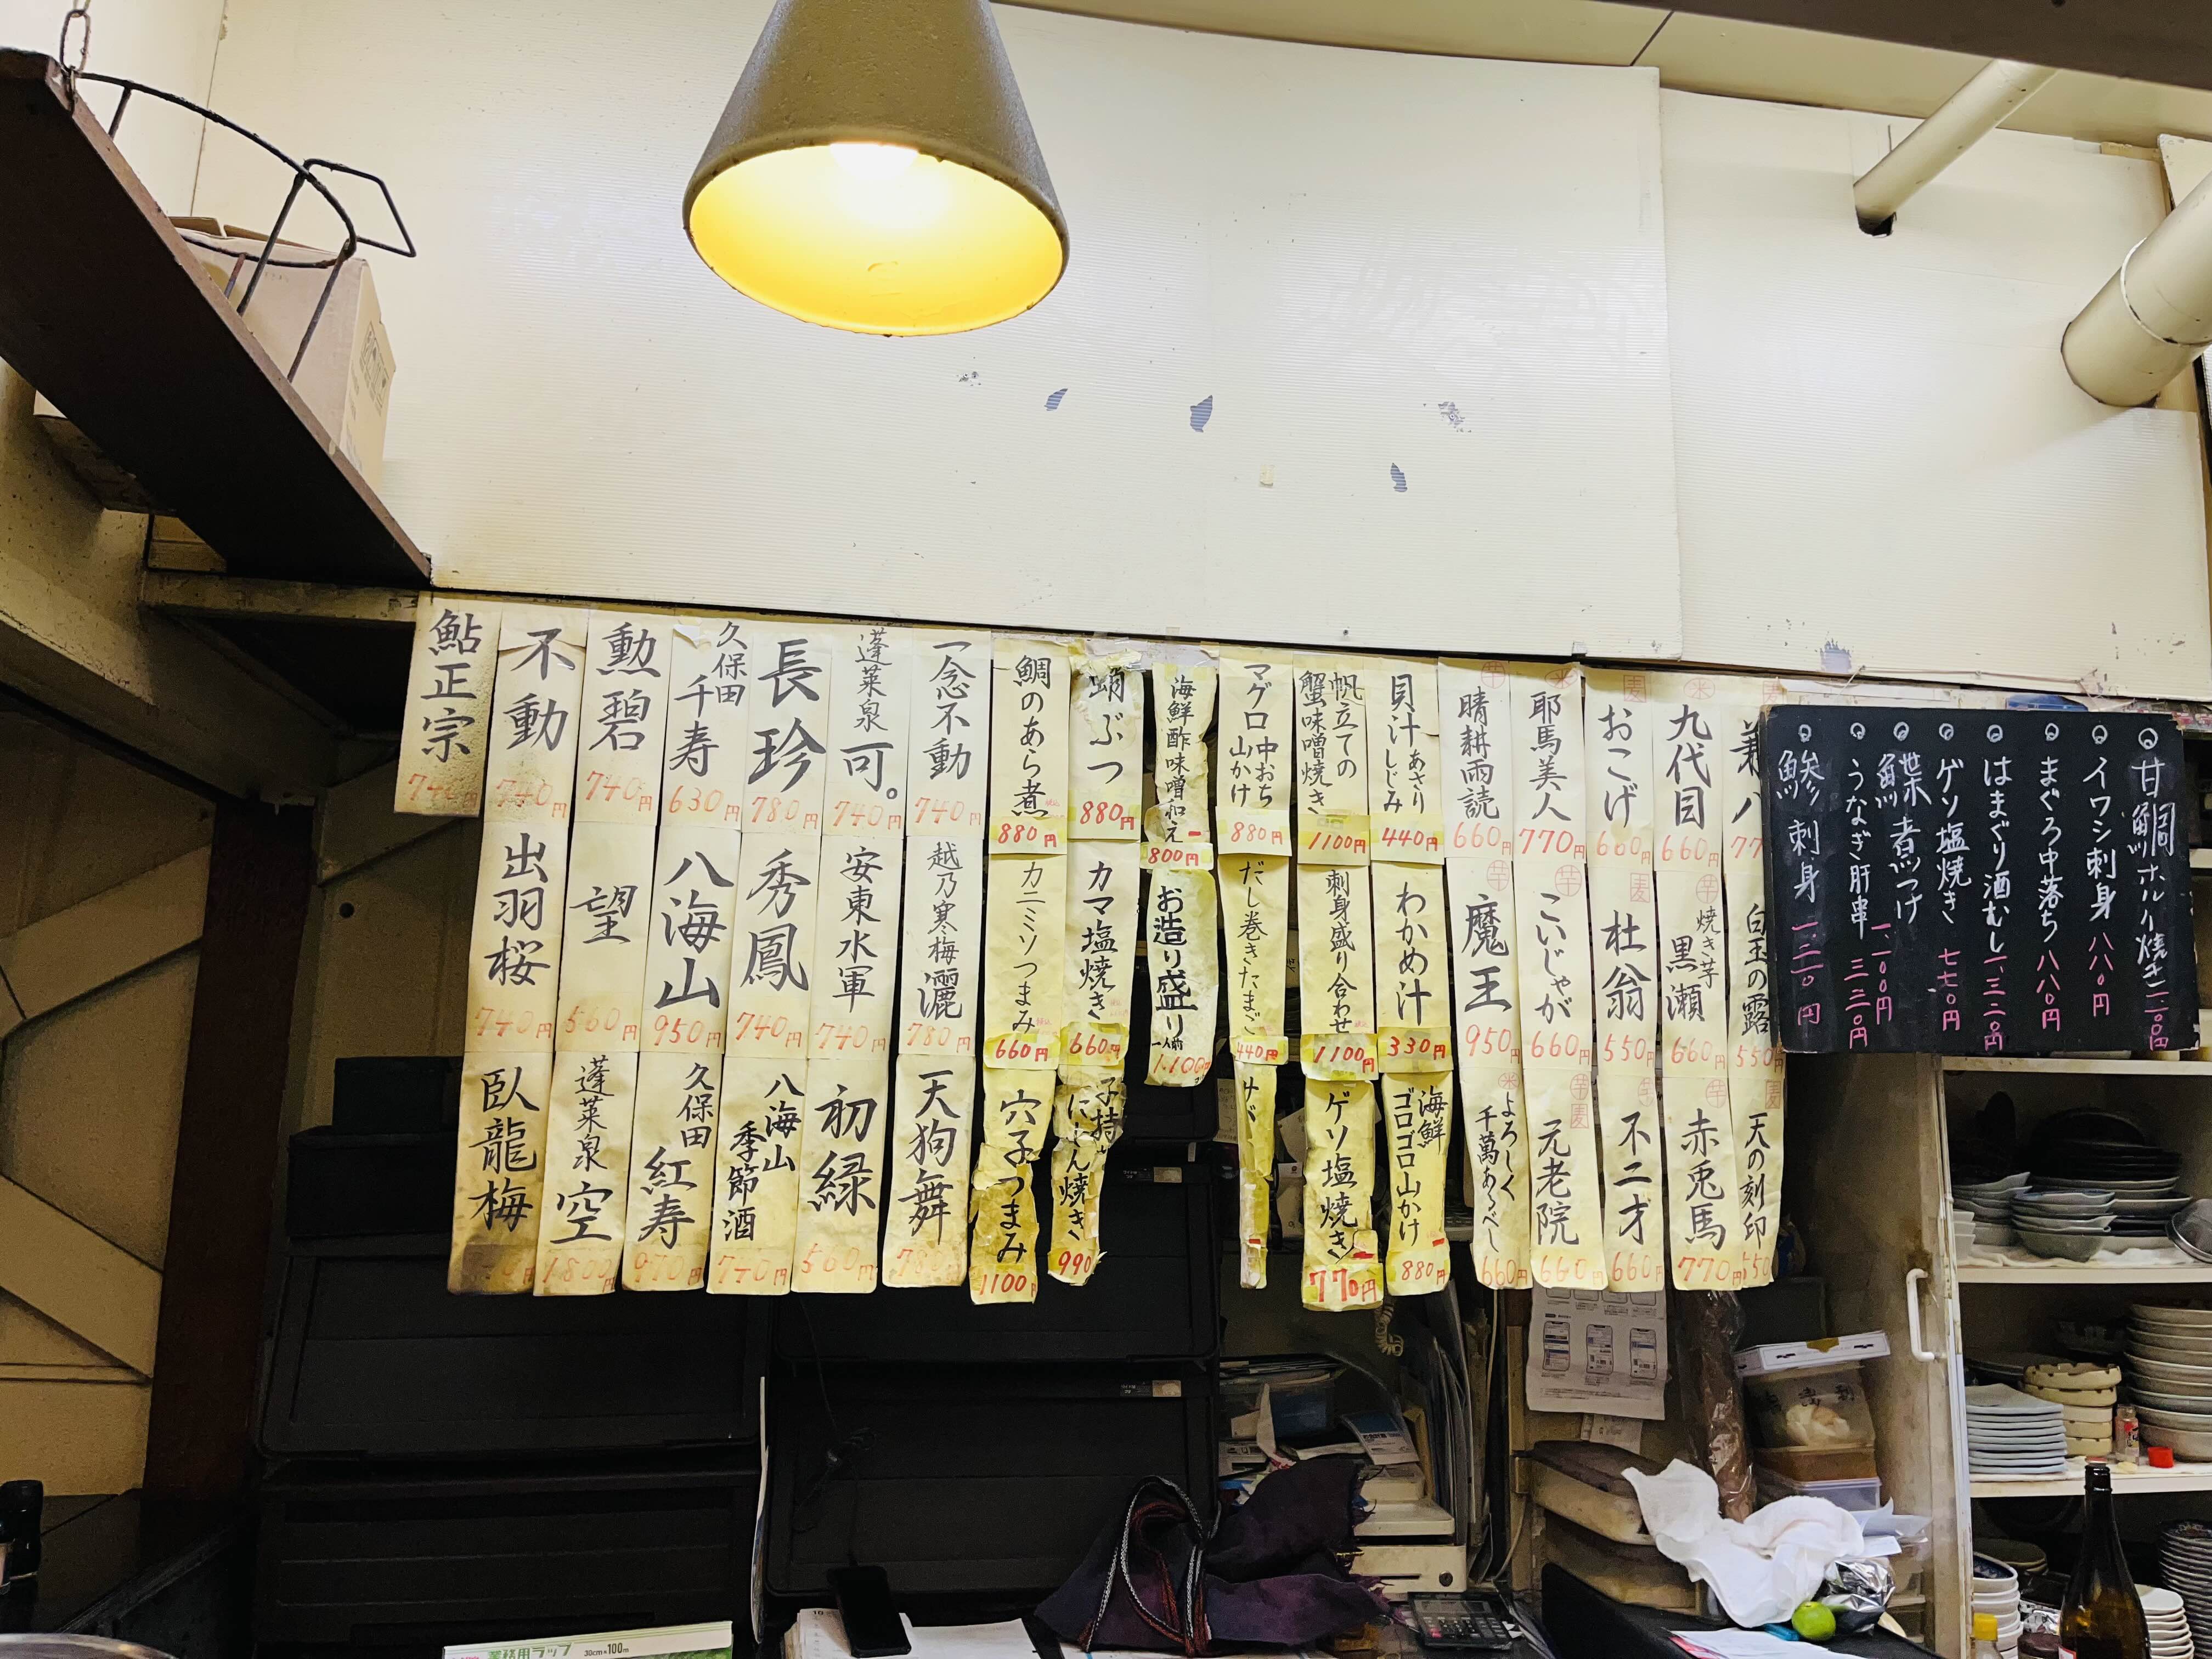 甘鯛ホルソ焼き 一、一〇〇円
イワシ刺身 八八〇円
まぐろ中落ち 八八〇円
はまぐり酒むし 一、三二〇円
ゲソ塩焼き 七七〇円
鰈煮つけ 一、一〇〇円
うなぎ肝串 三三〇円
鯵刺身 一、二一〇円
白玉の露 550円
麦 天の刻印 550円
米 九代目 660円
芋 焼き芋 黒瀬 660円
芋 赤兎馬 770円
麦 おこげ 660円
麦 杜翁 550円
芋 不二才 660円
米 耶馬美人 770円
芋 こいじゃが 660円
芋麦 元老院 660円
芋 晴耕雨読 660円
芋 魔王 950円
米 よろしく千萬あるべし 660円
貝汁 あさり しじみ 440円
わかめ汁 330円
海鮮ゴロゴロ山かけ 880円
帆立ての蟹味噌焼き 1100円
刺身盛り合わせ 税込 1100円
ゲソ塩焼き 770円
マグロ中おち山かけ 880円
だし巻きたまご 440円
サバ
海鮮酢味噌和え 800円
お造り盛り 一人前 1.100円
蛸ぶつ 880円
カマ塩焼き 660円
子持ちにしん焼き 990円
鯛のあら煮 税込 880円
カニミソつまみ 税込 660円
穴子つまみ 1100円
一念不動 740円
越乃寒梅 灑 780円
天狗舞 780円
蓬莱泉 可。 740円
安東水軍 740円
初緑 560円
長珍 780円
秀鳳 740円
八海山 季節酒 740円
久保田 千寿 630円
八海山 950円
久保田 紅寿 970円
勲碧 740円
望 560円
蓬莱泉 空 1800円
不動 740円
出羽桜 740円
臥龍梅
鮎正宗 740円
業務用ラップ 30cm×100m